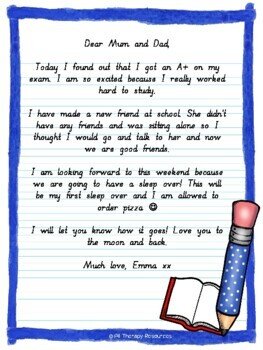 Dear Mum and Dad,
Today I found out that I got an A+ on my
exam. I am so excited because I really worked
hard to study.
I have made a new friend at school. She didn't
have any friends and was sitting alone so I
thought I would go and talk to her and now
we are good friends.
I am looking forward to this weekend because
we are going to have a sleep over! This will
be my first sleep over and I am allowed to
order pizza ☺
I will let you know how it goes! Love you to
the moon and back.
Much love, Emma xx
© PK Therapy Resources